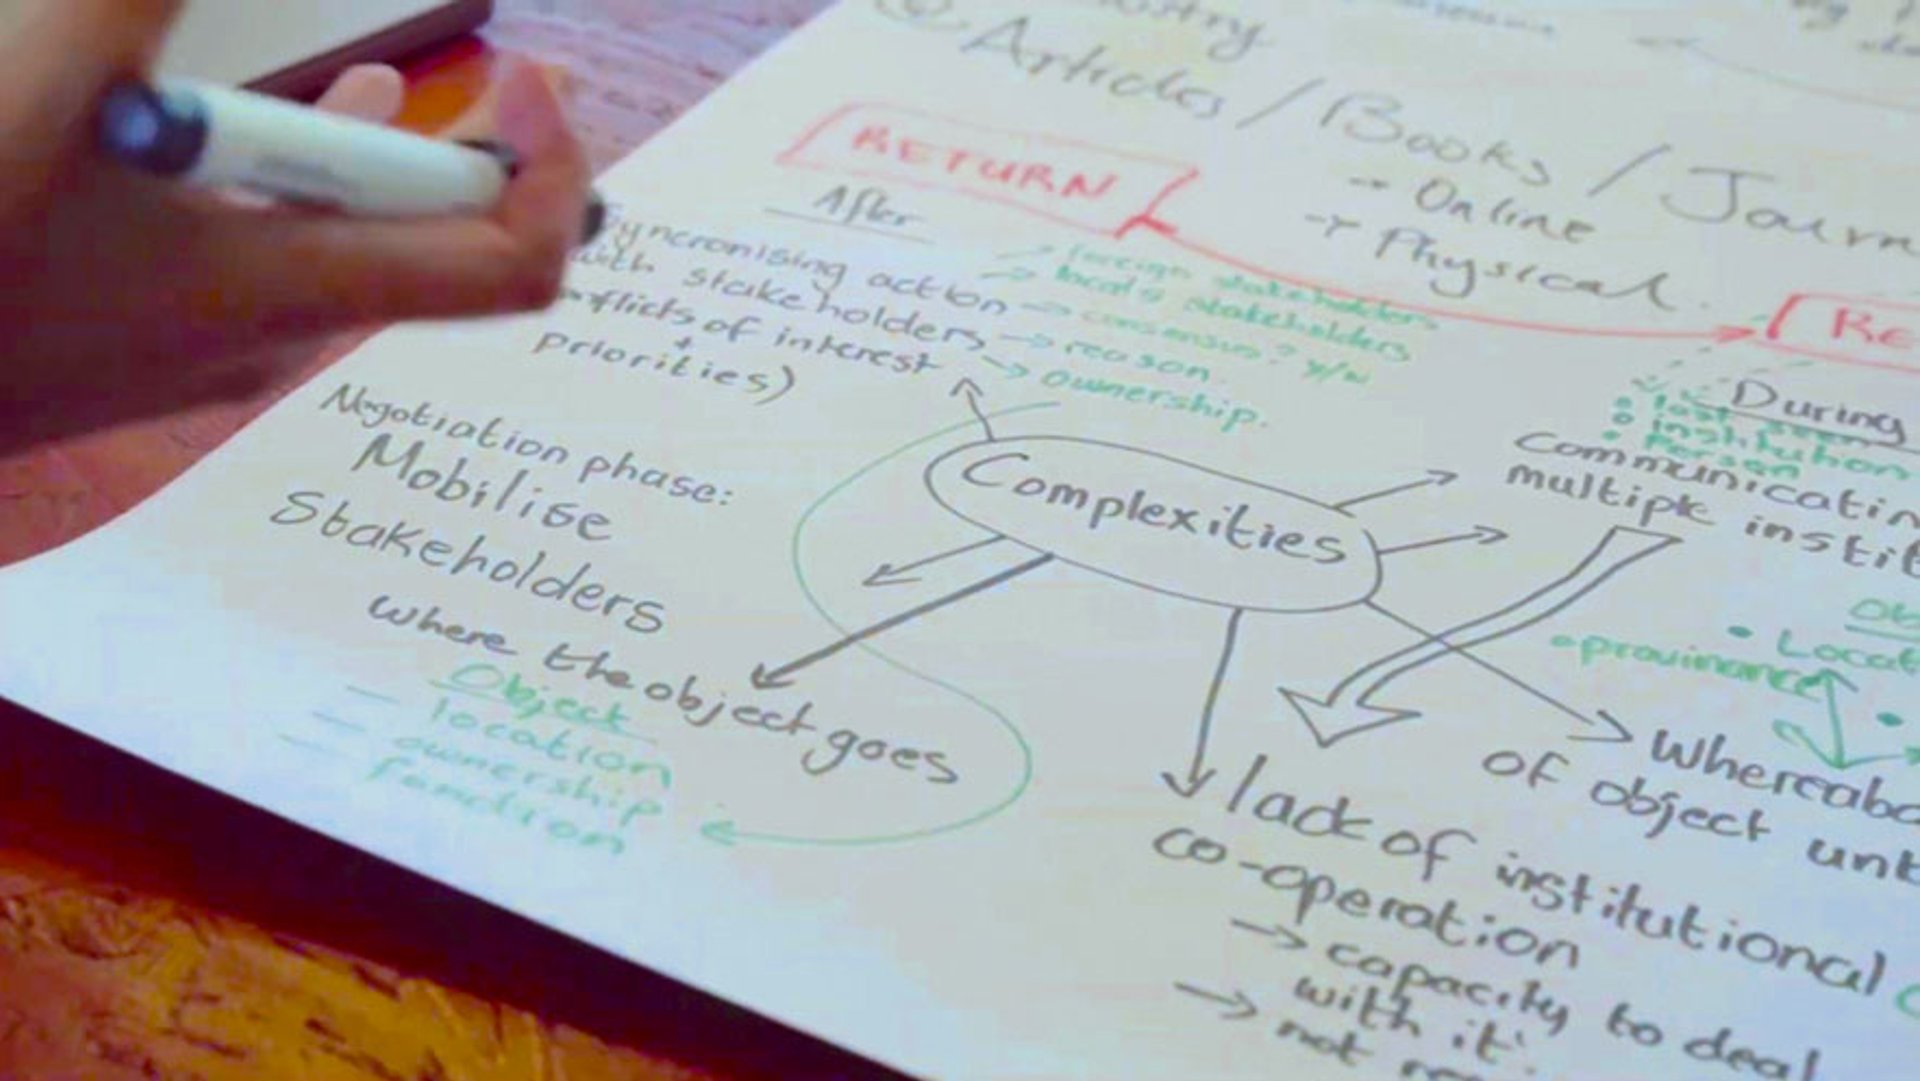 Articles / Books / Journ
→ Online
→ Physical
RETURN
After
syncronising action
with stakeholders
conflicts of interest
+
priorities)
→ foreign stakeholders
→ locals stakeholders
→ consensus? Y/N
→ reason.
→ ownership.
Negotiation phase:
Mobilise
Stakeholders
where the object goes
Object
— location
— ownership
— function
Complexities
RE
During
• last seen
• institution
• Person
Communicatin
multiple instit
Ob
• provinance
• Locat
Whereabo
of object unk
lack of institutional
co-operation
→ capacity to deal
with it.
→ not